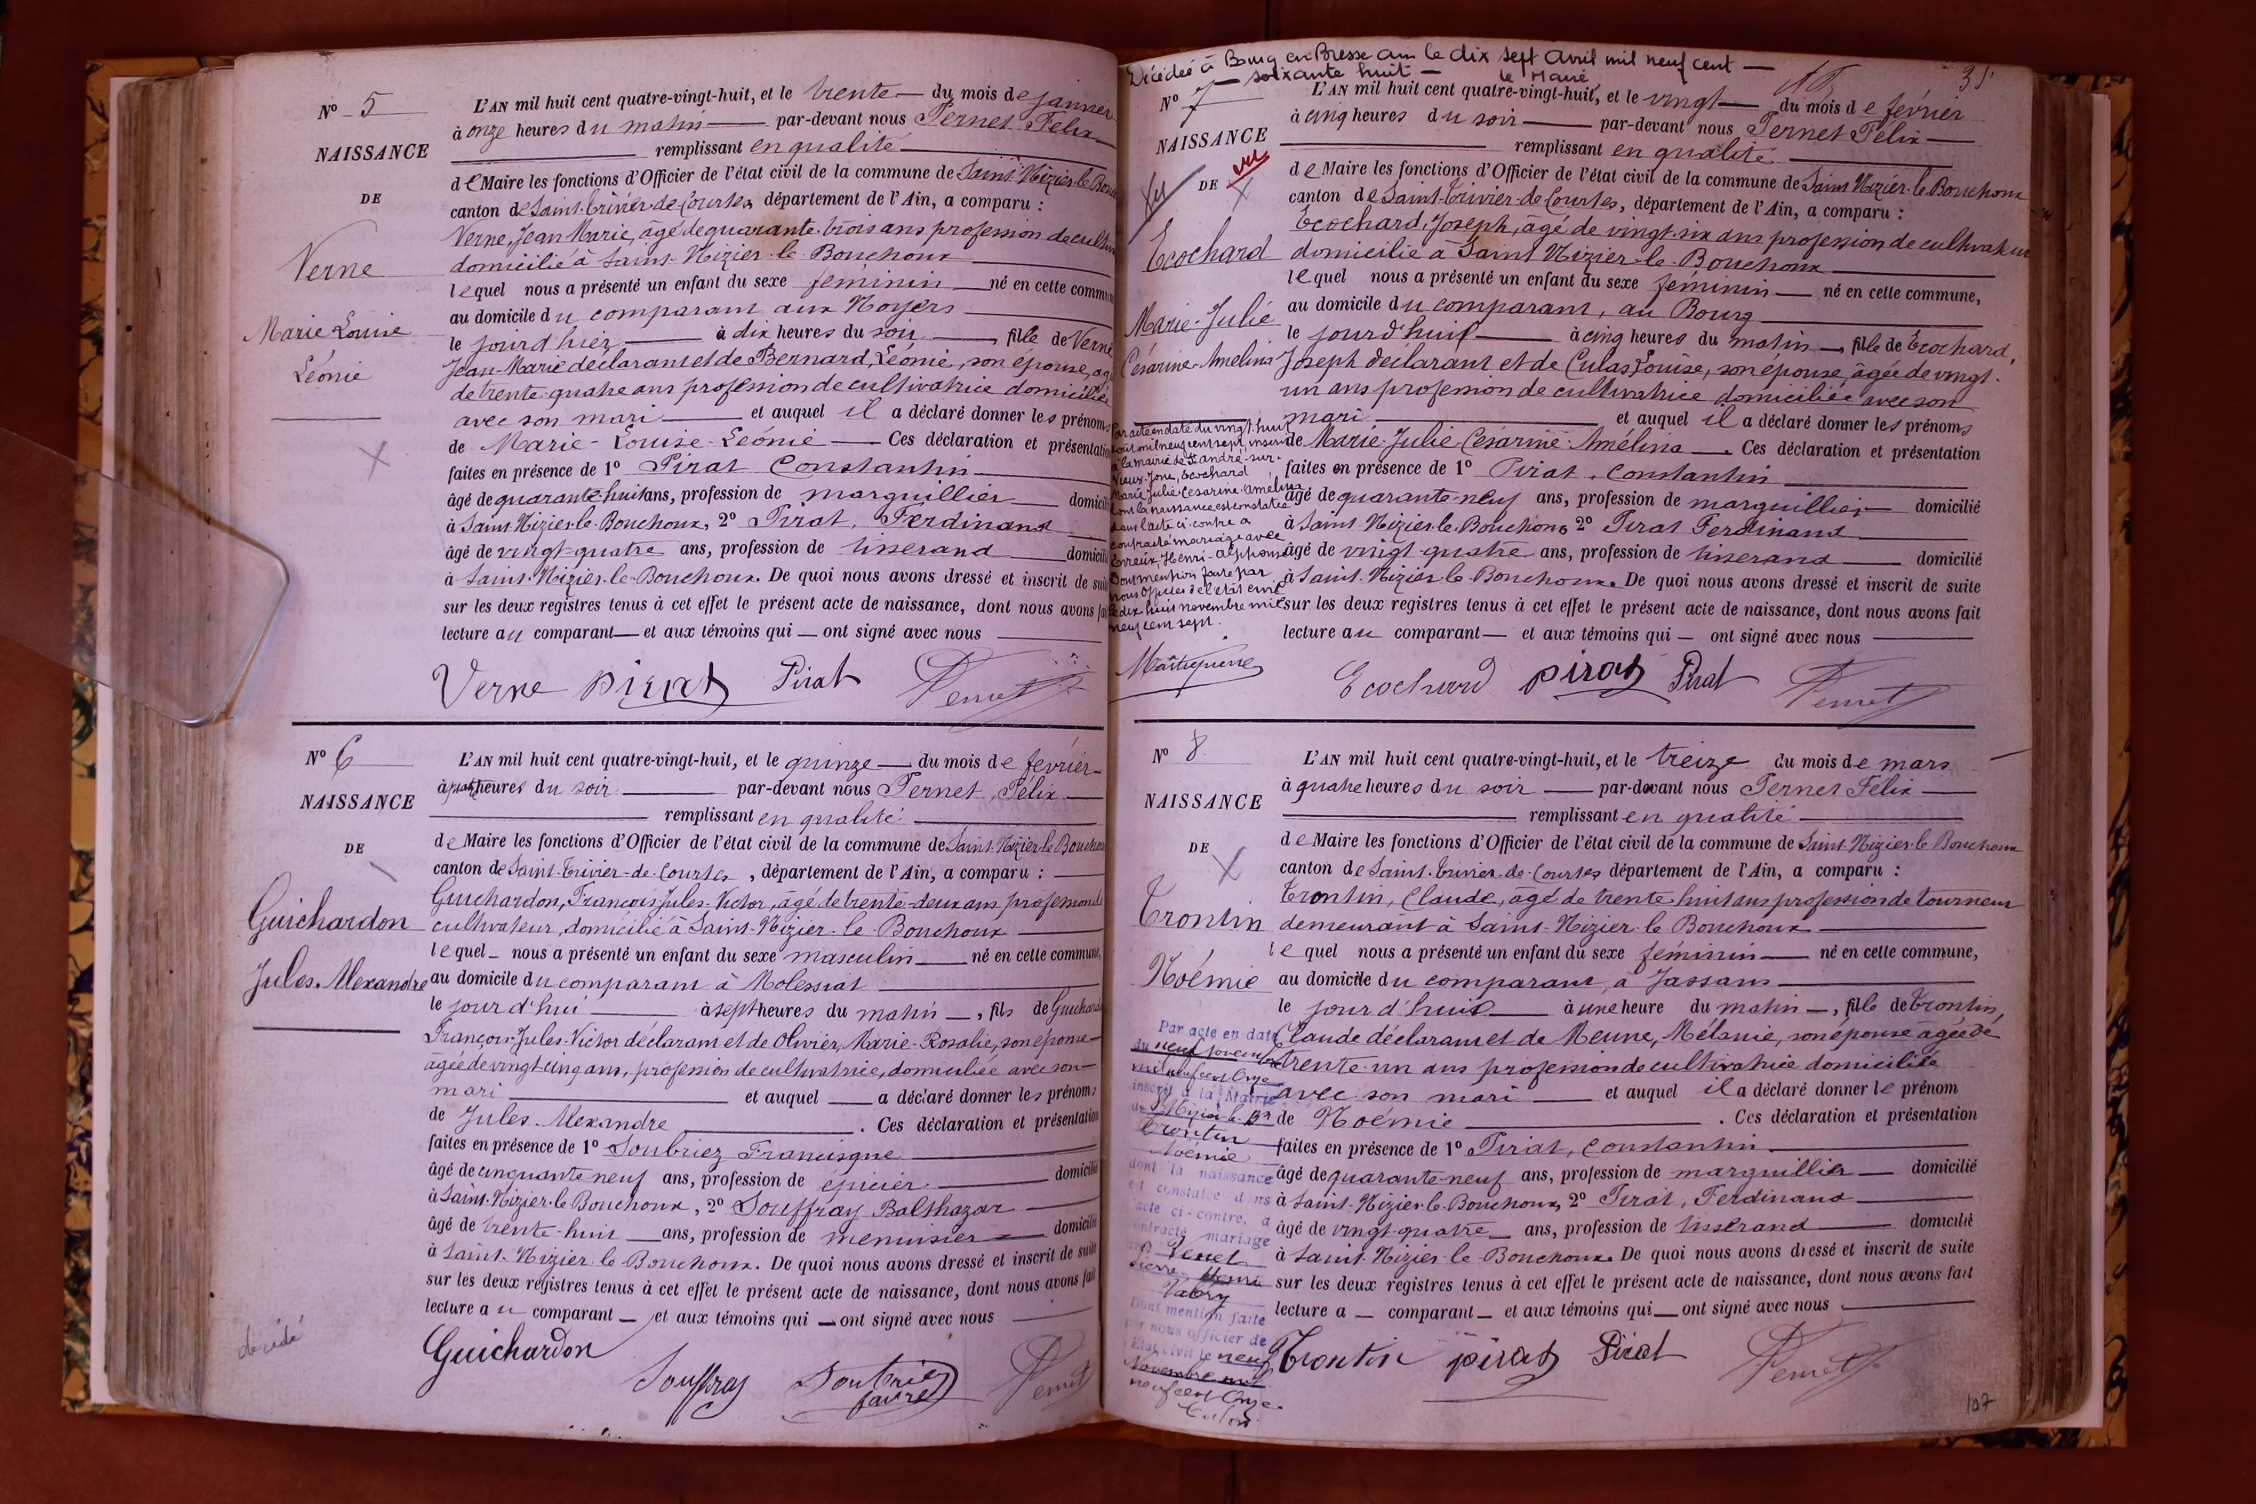 N° 5
NAISSANCE
DE
Verne
Marie Louise
Léonie
L'AN mil huit cent quatre-vingt-huit, et le trente du mois de janvier
à onze heures du matin par-devant nous Pernet Félix
remplissant en qualité
de Maire les fonctions d'Officier de l'état civil de la commune de Saint-Nizier-le-Bou
canton de Saint-Trivier-de-Courtes, département de l'Ain, a comparu :
Verne, Jean Marie, âgé de quarante-trois ans profession de cultiv
domicilié à Saint-Nizier-le-Bouchoux
lequel nous a présenté un enfant du sexe féminin né en cette commun
au domicile du comparant aux Noyers
le jour d'hier à dix heures du soir, fille de Verne
Jean-Marie déclarant et de Bernard, Léonie, son épouse, âgé
de trente-quatre ans profession de cultivatrice domiciliée
avec son mari et auquel il a déclaré donner les prénoms
de Marie-Louise-Léonie Ces déclaration et présentation
faites en présence de 1° Pirat Constantin
âgé de quarante-huit ans, profession de marguillier domicili
à Saint-Nizier-le-Bouchoux, 2° Pirat, Ferdinand
âgé de vingt-quatre ans, profession de tisserand domicili
à Saint-Nizier-le-Bouchoux. De quoi nous avons dressé et inscrit de suit
sur les deux registres tenus à cet effet le présent acte de naissance, dont nous avons fai
lecture au comparant et aux témoins qui ont signé avec nous
Verne Pirat Pirat Pernet
N° 6
NAISSANCE
DE
Guichardon
Jules-Alexandre
décédé
L'AN mil huit cent quatre-vingt-huit, et le quinze du mois de février
à quatre heures du soir par-devant nous Pernet, Félix
remplissant en qualité
de Maire les fonctions d'Officier de l'état civil de la commune de Saint-Nizier-le-Bouchoux
canton de Saint-Trivier-de-Courtes, département de l'Ain, a comparu :
Guichardon, François-Jules-Victor, âgé de trente-deux ans profession de
cultivateur, domicilié à Saint-Nizier-le-Bouchoux
lequel nous a présenté un enfant du sexe masculin né en cette commune,
au domicile du comparant à Molessiat
le jour d'hui à sept heures du matin, fils de Guichard
François-Jules-Victor déclarant et de Olivier, Marie-Rosalie, son épouse
âgée de vingt-cinq ans, profession de cultivatrice, domiciliée avec son
mari et auquel a déclaré donner les prénoms
de Jules-Alexandre. Ces déclaration et présentation
faites en présence de 1° Soubriez Francisque
âgé de cinquante-neuf ans, profession de épicier domicilié
à Saint-Nizier-le-Bouchoux, 2° Souffray Balthazar
âgé de trente-huit ans, profession de menuisier domicilié
à Saint-Nizier-le-Bouchoux. De quoi nous avons dressé et inscrit de suite
sur les deux registres tenus à cet effet le présent acte de naissance, dont nous avons fait
lecture au comparant et aux témoins qui ont signé avec nous
Guichardon Souffray Soubriez favre Pernet
Décédée à Bourg en Bresse Ain le dix sept Avril mil neuf cent
soixante huit le Maire
35
N° 7
NAISSANCE
vu
DE
Ecochard
Marie-Julie
Césarine-Amélina
Par acte en date du vingt-huit
août mil neuf cent sept, inscrit
à la mairie de St André-sur-
Vieux-Jonc, Ecochard
Marie-Julie-Césarine-Amélina
dont la naissance est constatée
dans l'acte ci-contre a
contracté mariage avec
Henri-Alphonse
Dont mention faite par
nous Officier de l'état civil
le dix-huit novembre mil
neuf cent sept.
L'AN mil huit cent quatre-vingt-huit, et le vingt du mois de février
à cinq heures du soir par-devant nous Pernet Félix
remplissant en qualité
de Maire les fonctions d'Officier de l'état civil de la commune de Saint-Nizier-le-Bouchoux
canton de Saint-Trivier-de-Courtes, département de l'Ain, a comparu :
Ecochard, Joseph, âgé de vingt-six ans profession de cultivateur
domicilié à Saint-Nizier-le-Bouchoux
lequel nous a présenté un enfant du sexe féminin né en cette commune,
au domicile du comparant, au Bourg
le jour d'hui à cinq heures du matin, fille de Ecochard,
Joseph déclarant et de Culas, Louise, son épouse, âgée de vingt-
un ans profession de cultivatrice domiciliée avec son
mari et auquel il a déclaré donner les prénoms
de Marie-Julie-Césarine-Amélina. Ces déclaration et présentation
faites en présence de 1° Pirat, Constantin
âgé de quarante-neuf ans, profession de marguillier domicilié
à Saint-Nizier-le-Bouchoux, 2° Pirat Ferdinand
âgé de vingt-quatre ans, profession de tisserand domicilié
à Saint-Nizier-le-Bouchoux. De quoi nous avons dressé et inscrit de suite
sur les deux registres tenus à cet effet le présent acte de naissance, dont nous avons fait
lecture au comparant et aux témoins qui ont signé avec nous
Ecochard Pirat Pirat Pernet
N° 8
NAISSANCE
DE
Trontin
Noémie
Par acte en date
du neuf novembre
mil neuf cent onze
inscrit à la Mairie
de St Nizier-le-Bx
Trontin
Noémie
dont la naissance
est constatée dans
l'acte ci-contre, a
contracté mariage
avec Venet
Pierre Henri
Valéry
Dont mention faite
par nous officier de
l'Etat civil le neuf
Novembre mil
neuf cent Onze.
L'AN mil huit cent quatre-vingt-huit, et le treize du mois de mars
à quatre heures du soir par-devant nous Pernet Félix
remplissant en qualité
de Maire les fonctions d'Officier de l'état civil de la commune de Saint-Nizier-le-Bouchoux
canton de Saint-Trivier-de-Courtes département de l'Ain, a comparu :
Trontin, Claude, âgé de trente-huit ans profession de tourneur
demeurant à Saint-Nizier-le-Bouchoux
lequel nous a présenté un enfant du sexe féminin né en cette commune,
au domicile du comparant, à Jassans
le jour d'hui à une heure du matin, fille de Trontin,
Claude déclarant et de Meune, Mélanie, son épouse âgée de
trente-un ans profession de cultivatrice domiciliée
avec son mari et auquel il a déclaré donner le prénom
de Noémie. Ces déclaration et présentation
faites en présence de 1° Pirat, Constantin
âgé de quarante-neuf ans, profession de marguillier domicilié
à Saint-Nizier-le-Bouchoux, 2° Pirat, Ferdinand
âgé de vingt-quatre ans, profession de tisserand domicilié
à Saint-Nizier-le-Bouchoux. De quoi nous avons dressé et inscrit de suite
sur les deux registres tenus à cet effet le présent acte de naissance, dont nous avons fait
lecture a comparant et aux témoins qui ont signé avec nous
Trontin Pirat Pirat Pernet
107